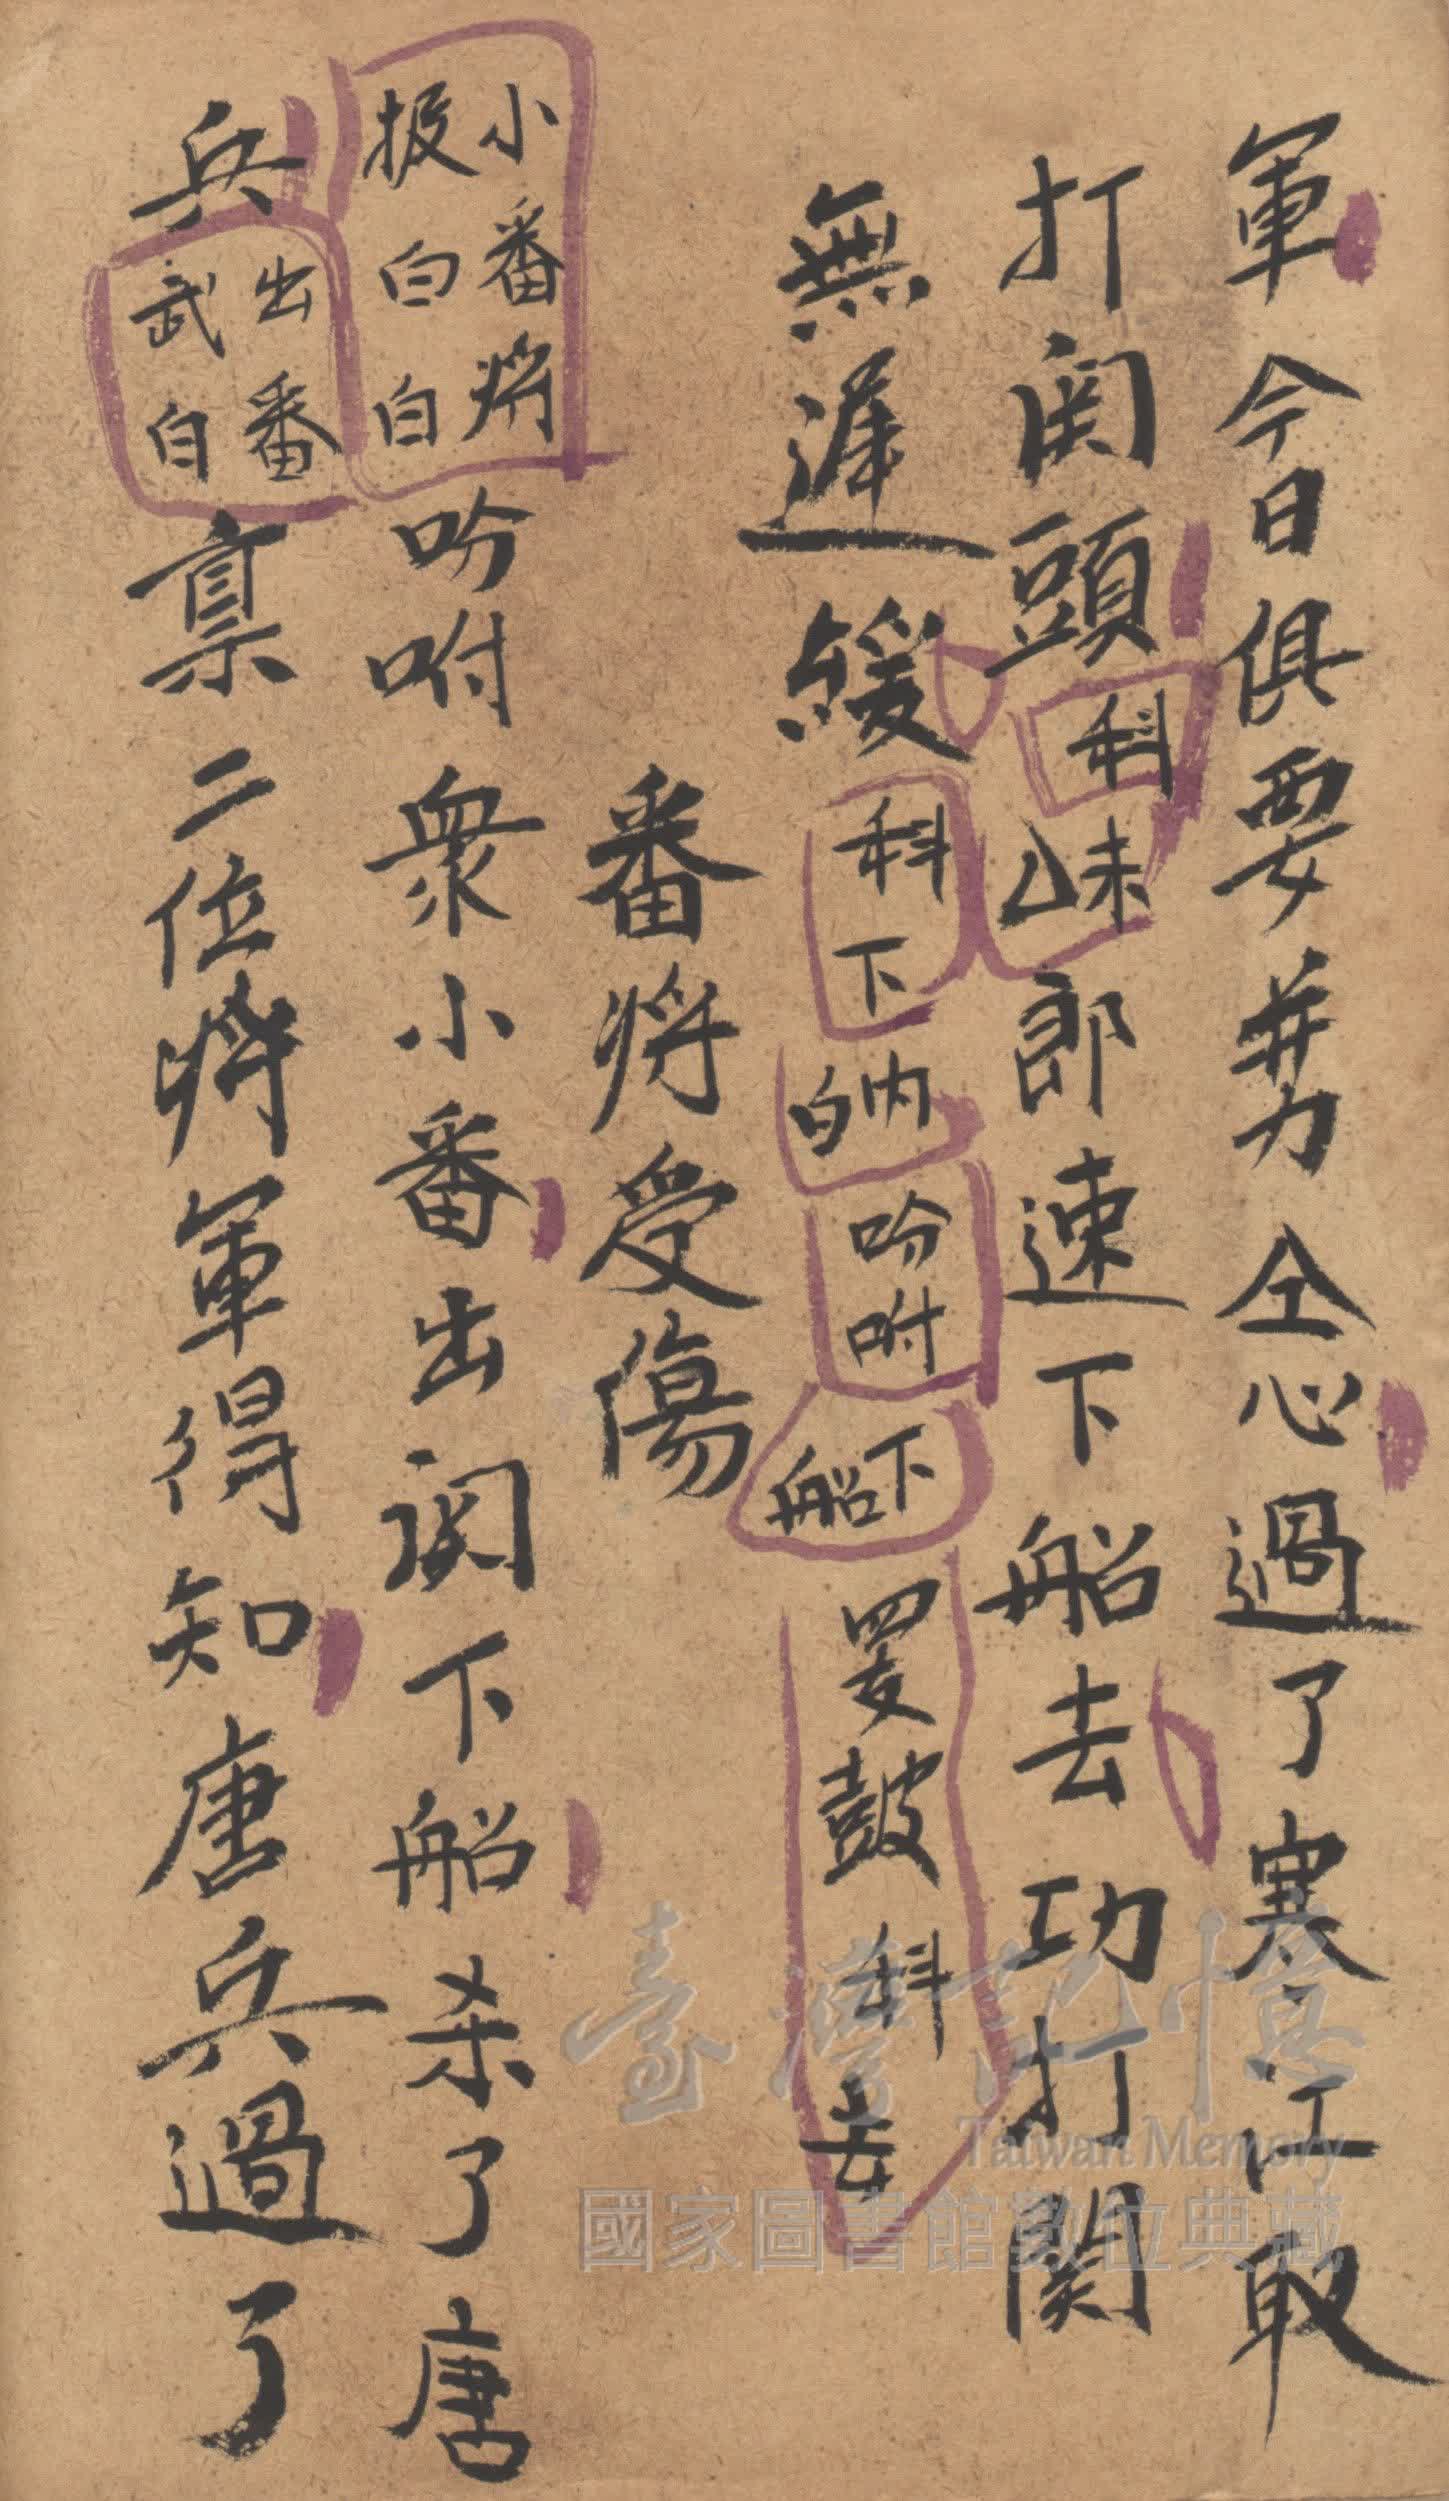 軍今日俱要並力仝心過了寒江取
打関頭 科 白未 郎速下船去功打関
無遲緩 科下 白内 吩咐 下船 科去
番将受傷
小番将
扳白白 吩咐衆小番出関下船杀了唐
兵 出番
武白 稟二位將軍得知唐兵過了
臺灣記憶
Taiwan Memory
國家圖書館數位典藏